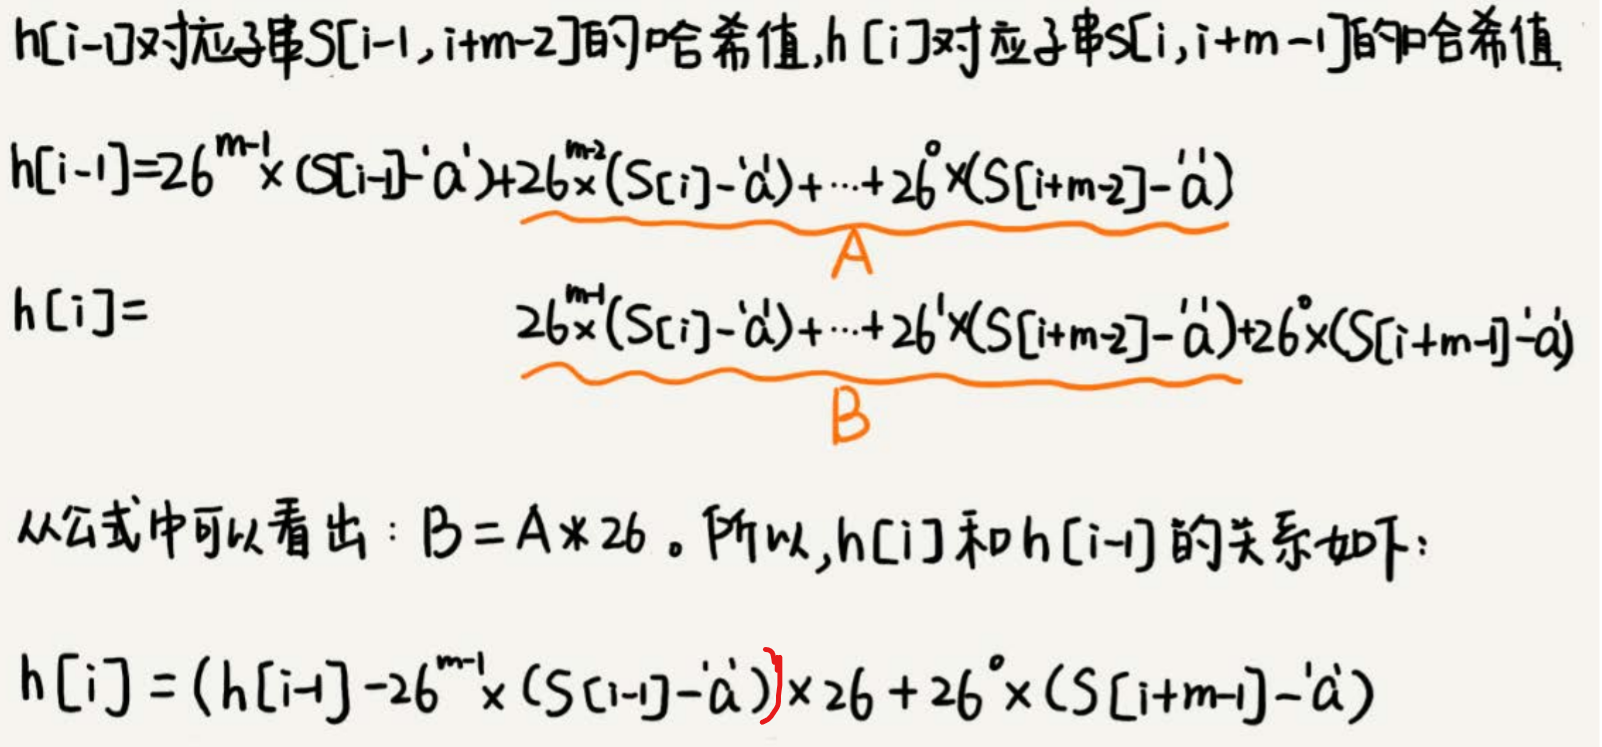 h[i-1]对应子串S[i-1,i+m-2]的哈希值,h[i]对应子串S[i,i+m-1]的哈希值.
h[i-1]=26^{m-1}×(S[i-1]-'a')+26^{m-2}×(S[i]-'a')+…+26^0×(S[i+m-2]-'a')
A
h[i]= 26^{m-1}×(S[i]-'a')+…+26^1×(S[i+m-2]-'a')+26^0×(S[i+m-1]-'a')
B
从公式中可以看出:B=A*26。所以,h[i]和h[i-1]的关系如下:
h[i]=(h[i-1]-26^{m-1}×(S[i-1]-'a'))×26+26^0×(S[i+m-1]-'a')